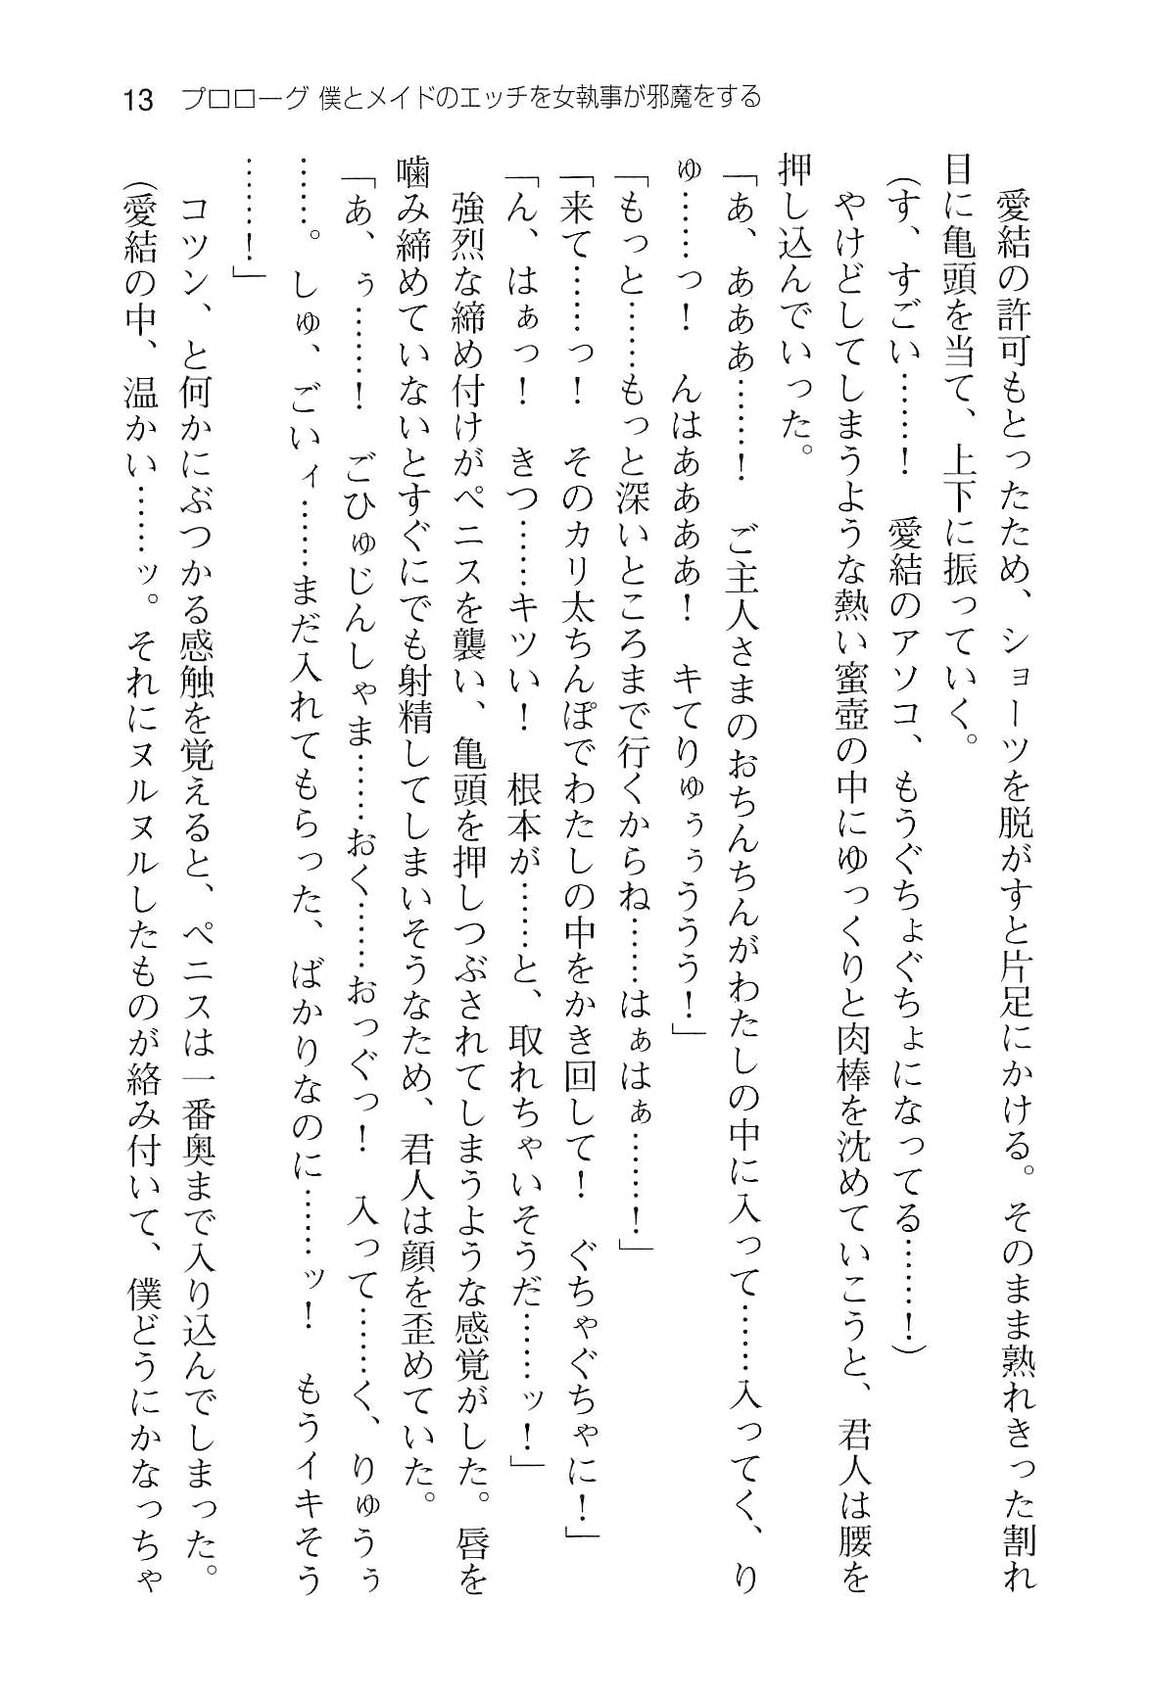 13 プロローグ 僕とメイドのエッチを女執事が邪魔をする
　愛結の許可もとったため、ショーツを脱がすと片足にかける。そのまま熟れきった割れ
目に亀頭を当て、上下に振っていく。
（す、すごい……！　愛結のアソコ、もうぐちょぐちょになってる……！）
　やけどしてしまうような熱い蜜壺の中にゆっくりと肉棒を沈めていこうと、君人は腰を
押し込んでいった。
「あ、あああ……！　ご主人さまのおちんちんがわたしの中に入って……入ってく、り
ゅ……っ！　んはああああ！　キてりゅぅぅううう！」
「もっと……もっと深いところまで行くからね……はぁはぁ……！」
「来て……っ！　そのカリ太ちんぽでわたしの中をかき回して！　ぐちゃぐちゃに！」
「ん、はぁっ！　きつ……キツい！　根本が……と、取れちゃいそうだ……ッ！」
　強烈な締め付けがペニスを襲い、亀頭を押しつぶされてしまうような感覚がした。唇を
噛み締めていないとすぐにでも射精してしまいそうなため、君人は顔を歪めていた。
「あ、ぅ……！　ごひゅじんしゃま……おく……おっぐっ！　入って……く、りゅうぅ
……。しゅ、ごいィ……まだ入れてもらった、ばかりなのに……ッ！　もうイキそう
……！」
　コツン、と何かにぶつかる感触を覚えると、ペニスは一番奥まで入り込んでしまった。
（愛結の中、温かい……ッ。それにヌルヌルしたものが絡み付いて、僕どうにかなっちゃ